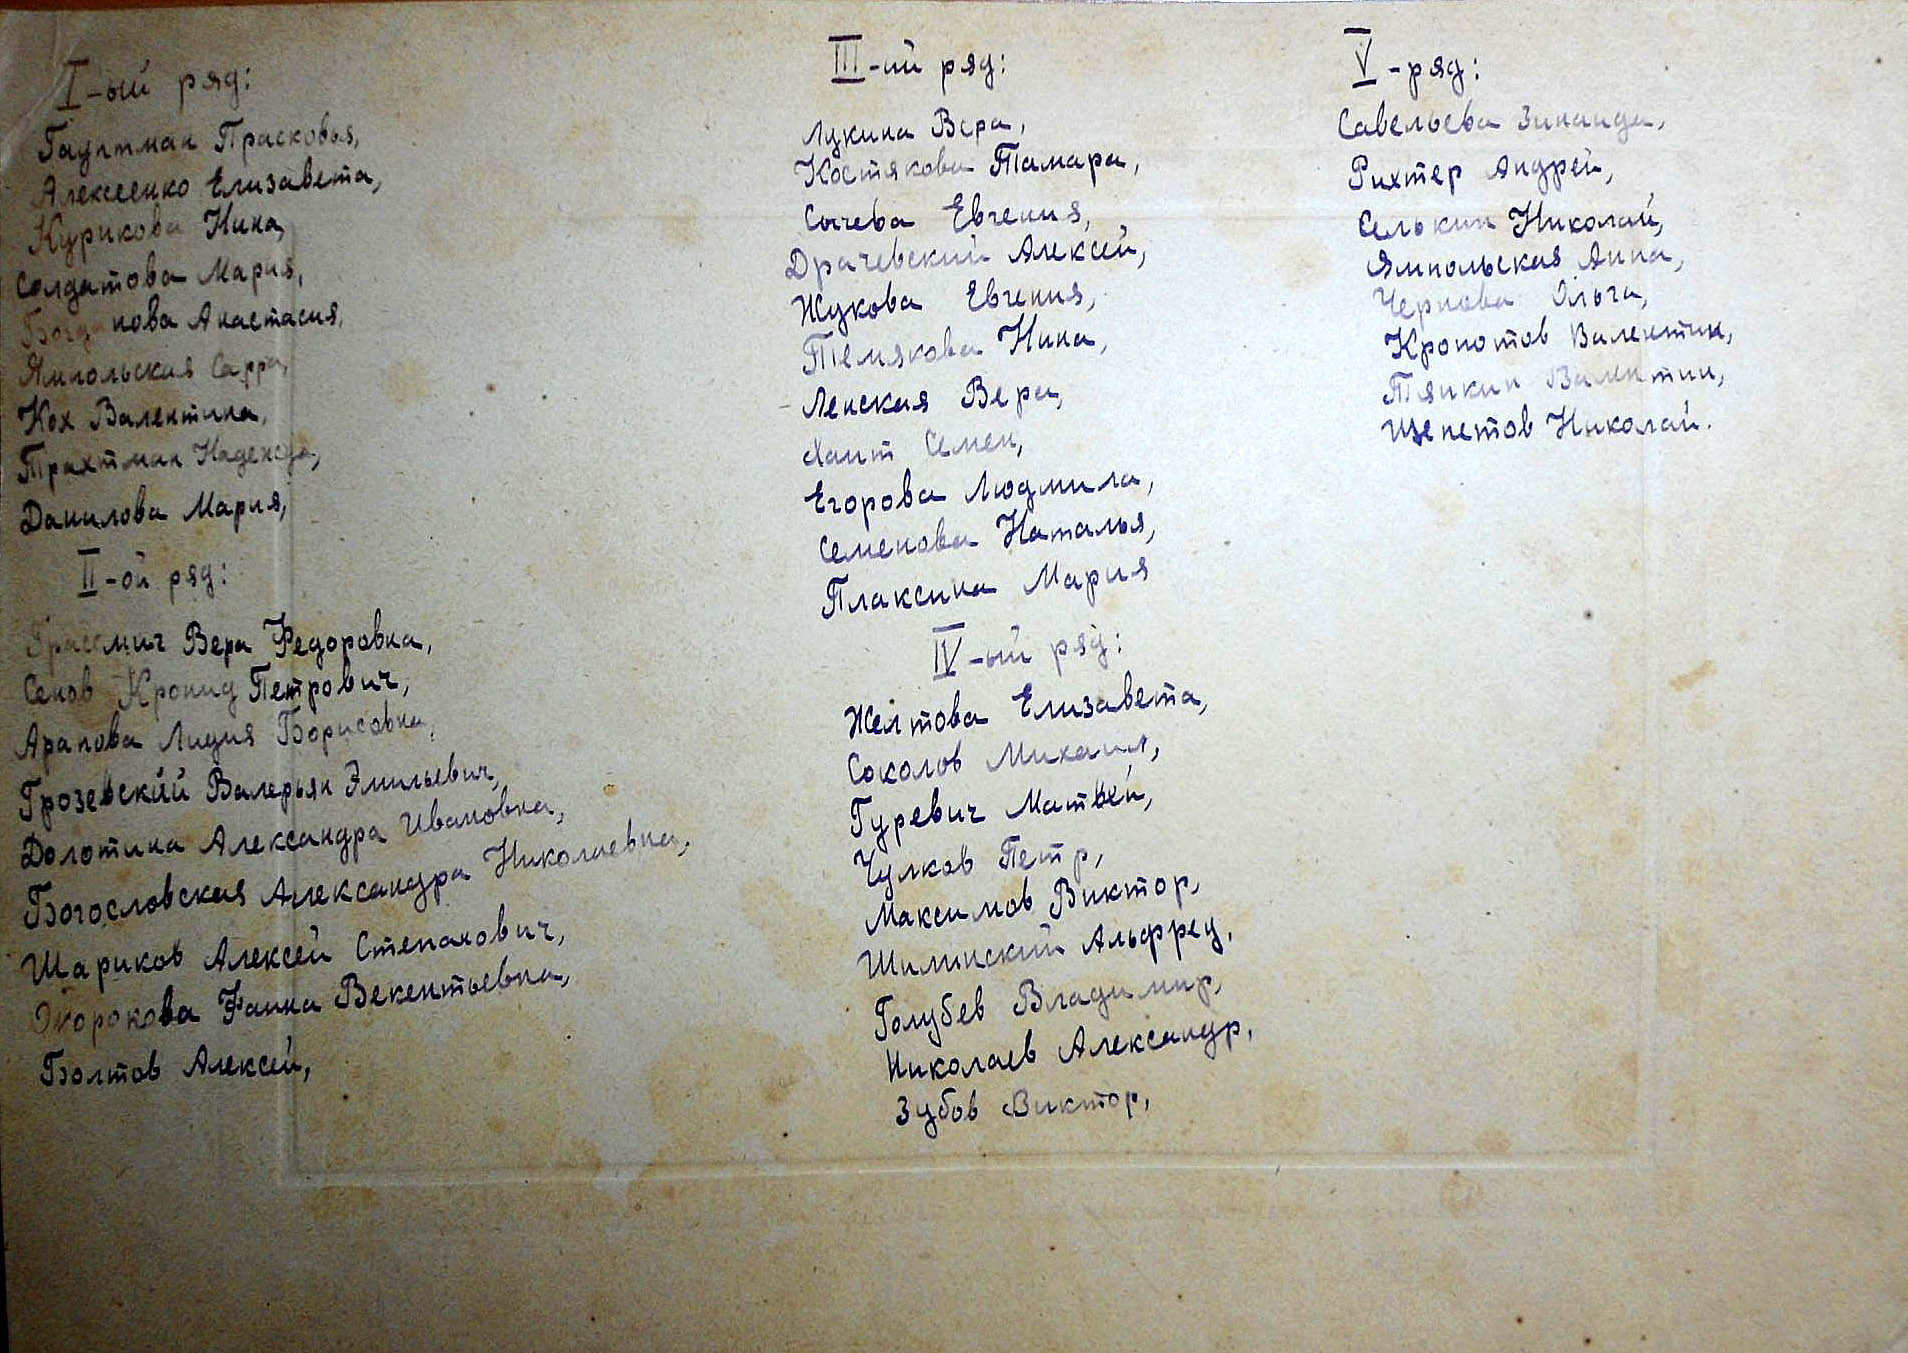 I-ый ряд:
Гауптман Прасковья,
Алексеенко Елизавета,
Курикова Нина,
Солдатова Мария,
Богданова Анастасия,
Ямпольская Сарра,
Кох Валентина,
Трахтман Надежда,
Данилова Мария,
II-ой ряд:
Вера Федоровна,
Сенов Кронид Петрович,
Арапова Лидия Борисовна,
Грозевский Валерьян Эмильевич,
Долотина Александра Ивановна,
Богословская Александра Николаевна,
Шариков Алексей Степанович,
Фаина Векентьевна,
Болтов Алексей,
III-ий ряд:
Лукина Вера,
Костякова Тамара,
Сычева Евгения,
Драчевский Алексей,
Жукова Евгения,
Темякова Нина,
Ленская Вера,
Хаит Семен,
Егорова Людмила,
Семенова Наталья,
Плаксина Мария
IV-ый ряд:
Желтова Елизавета,
Соколов Михаил,
Гуревич Матвей,
Чулков Петр,
Максимов Виктор,
Шилинский Альфред,
Голубев Владимир,
Николаев Александр,
Зубов Виктор,
V-ряд:
Савельева Зинаида,
Рихтер Андрей,
Селькин Николай,
Ямпольская Анна,
Чернова Ольга,
Кропотов Валентин,
Тяпкин Валентин,
Щепетов Николай.